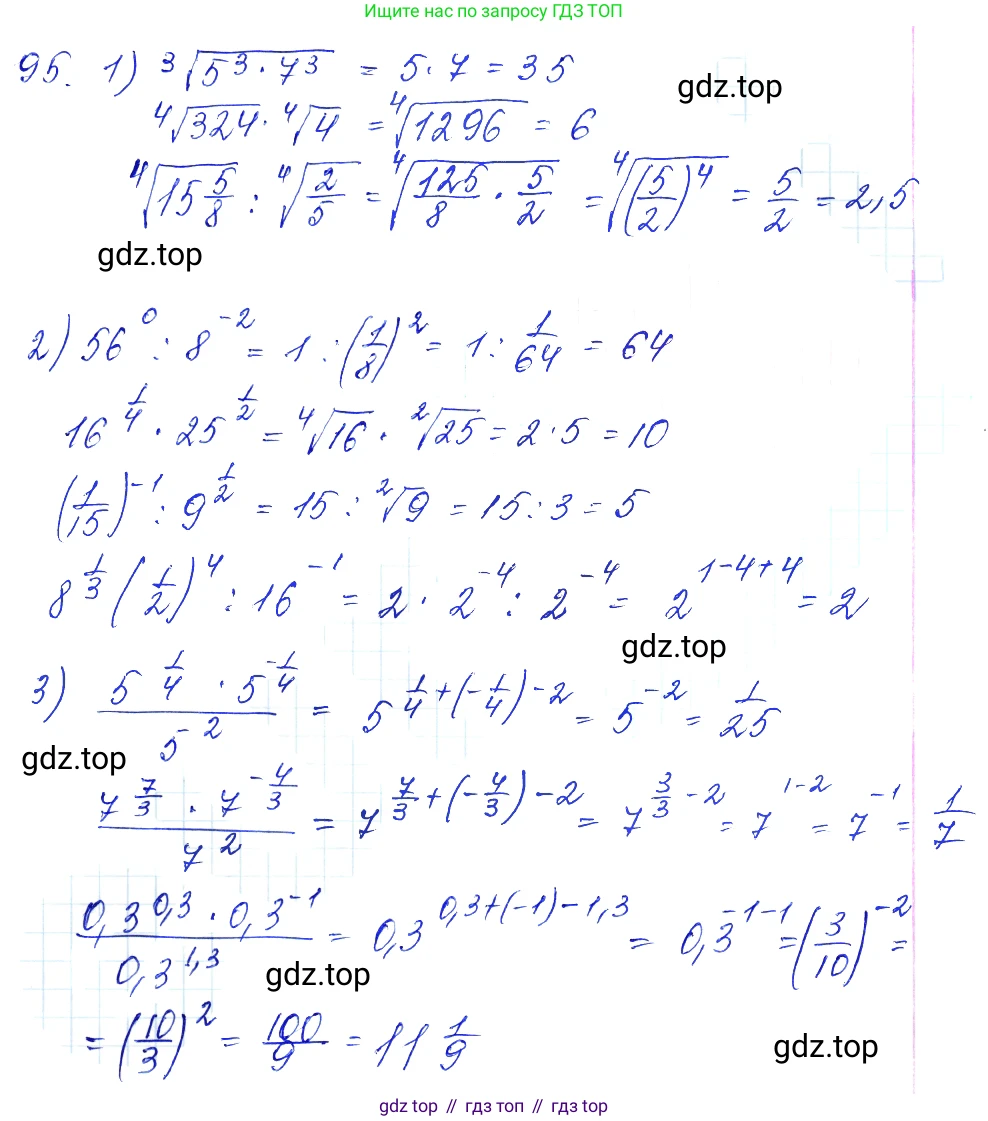 Ищите нас по запросу ГДЗ ТОП
95. 1) ∛(5³ · 7³) = 5 · 7 = 35
gdz.top
⁴√324 · ⁴√4 = ⁴√1296 = 6
⁴√(15 5/8) : ⁴√(2/5) = ⁴√(125/8 · 5/2) = ⁴√((5/2)⁴) = 5/2 = 2,5
gdz.top
2) 56⁰ : 8⁻² = 1 : (1/8)² = 1 : 1/64 = 64
16^(1/4) · 25^(1/2) = ⁴√16 · ²√25 = 2 · 5 = 10
(1/15)⁻¹ : 9^(1/2) = 15 : ²√9 = 15 : 3 = 5
8^(1/3) (1/2)⁴ : 16⁻¹ = 2 · 2⁻⁴ : 2⁻⁴ = 2^(1-4+4) = 2
gdz.top
3) (5^(1/4) · 5^(-1/4))/5² = 5^(1/4+(-1/4)-2) = 5⁻² = 1/25
gdz.top
(7^(7/3) · 7^(-4/3))/7² = 7^(7/3+(-4/3)-2) = 7^(3/3-2) = 7^(1-2) = 7⁻¹ = 1/7
(0,3^(0,3) · 0,3⁻¹)/0,3^(1,3) = 0,3^(0,3+(-1)-1,3) = 0,3^(-1-1) = (3/10)⁻² =
gdz.top
= (10/3)² = 100/9 = 11 1/9
gdz.top
gdz top // гдз топ // gdz top